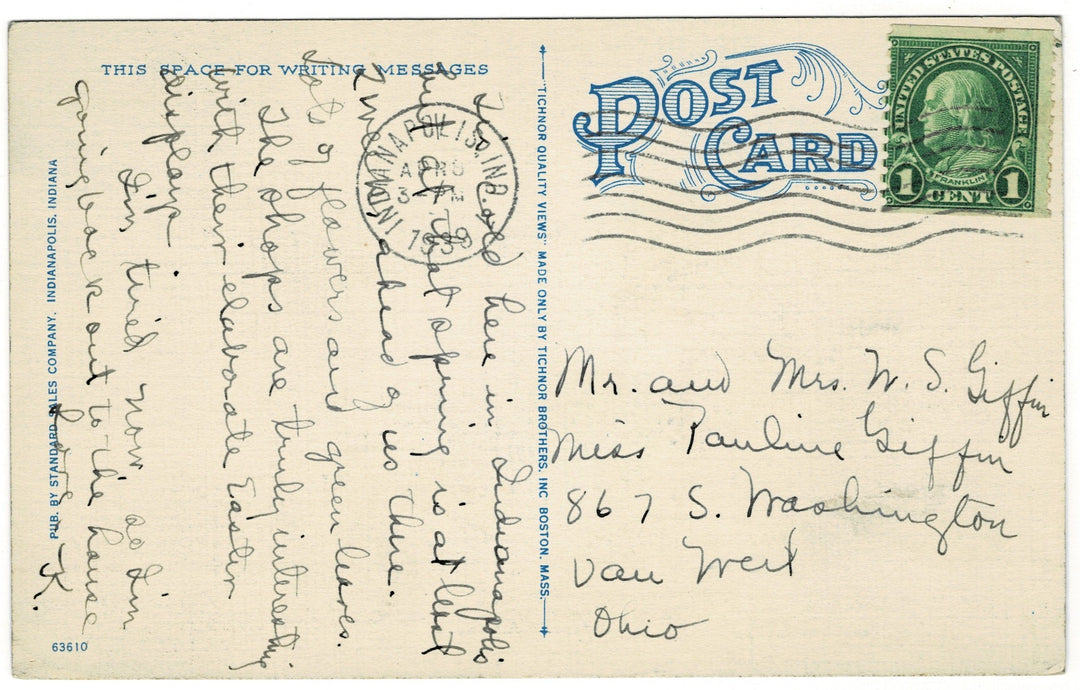 THIS SPACE FOR WRITING MESSAGES
cold here in Indianapolis
opening is at least
ahead of us there.
Lots of flowers and green leaves.
The shops are truly interesting
with their elaborate Easter
displays
I'm tired now so I'm
going back out to the house
Love - K.
PUB. BY STANDARD SALES COMPANY, INDIANAPOLIS, INDIANA
63610
"TICHNOR QUALITY VIEWS" MADE ONLY BY TICHNOR BROTHERS, INC BOSTON, MASS.
POST
CARD
INDIANAPOLIS, IND.
3-PM
UNITED STATES POSTAGE
FRANKLIN
1 CENT 1
Mr. and Mrs. W. S. Giffin
Miss Pauline Giffin
867 S. Washington
Van Wert
Ohio